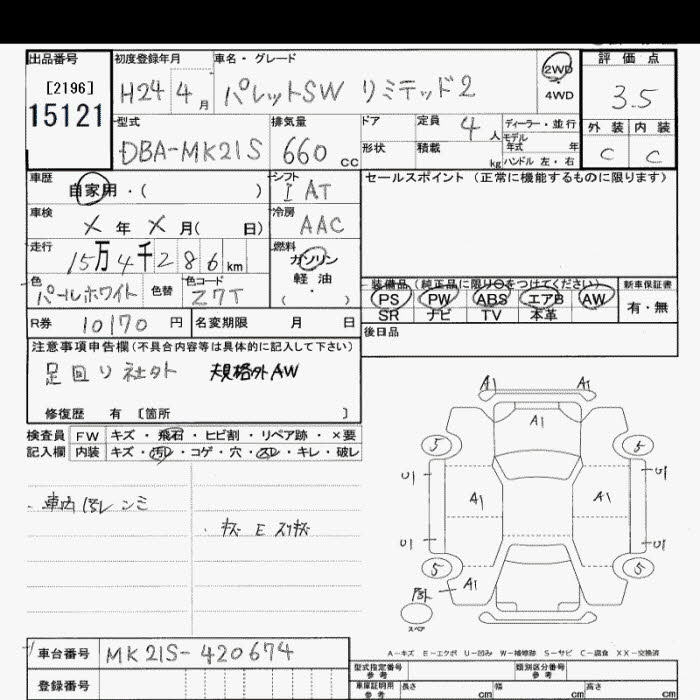 出品番号 初度登録年月 車名・グレード 2WD 評価点
[2196] H24 4月 パレットSW リミテッド2 4WD 3.5
15121 型式 排気量 ドア 定員 4人 ディーラー・並行 外装 内装
DBA-MK21S 660cc 形状 積載 kg モデル年式 年 ハンドル 左・右 C C
車歴 自家用・( ) シフト I AT セールスポイント (正常に機能するものに限ります)
車検 X年 X月( 日) 冷房 AAC
走行 15万4千286km 燃料 ガソリン
色 パールホワイト 色替 色コード Z7T 軽油・( )
装備品 (純正品に限り○をつけてください) 新車保証書
PS PW ABS エアB AW 有・無
SR ナビ TV 本革
R券 10170円 名変期限 月 日 後日品
注意事項申告欄(不具合内容等は具体的に記入して下さい)
足回り社外 規格外AW
修復歴 有 [箇所 ]
検査員 FW キズ・飛石・ヒビ割・リペア跡・×要
記入欄 内装 キズ・汚レ・コゲ・穴・スレ・キレ・破レ
・車内汚レ シミ
・キズ E スリキズ
A1 A1
A1
5 5
U1 U1
A1 A1
U1 U1
5 5
A1
スペア
A-キズ E-エクボ U-凹み W-補修跡 S-サビ C-腐食 XX-交換済
車台番号 MK21S-420674
登録番号
型式指定番号 参考 類別区分番号 参考
車庫証明用 参考 長さ cm 幅 cm 高さ cm